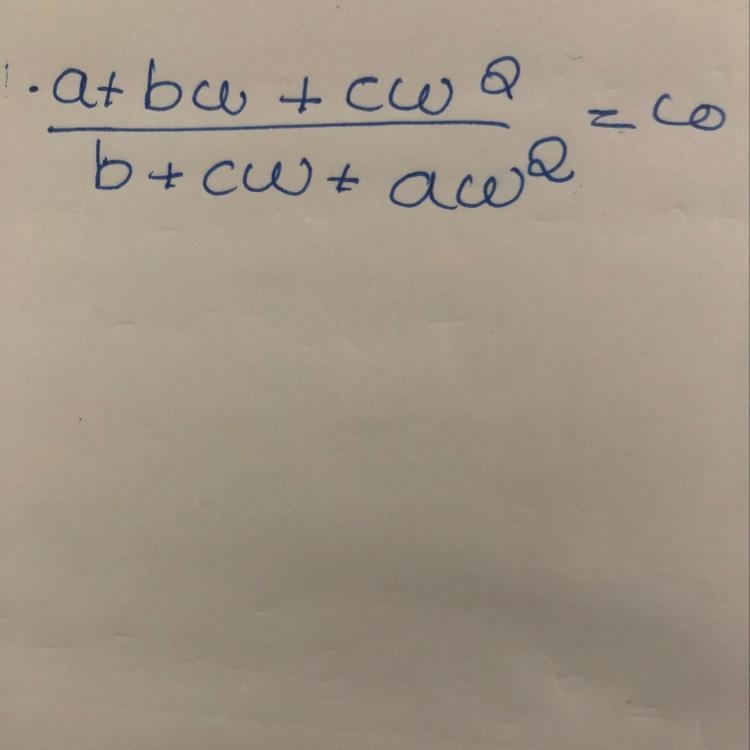 1. a + bω + cω²
= ω
b + cω + aω²